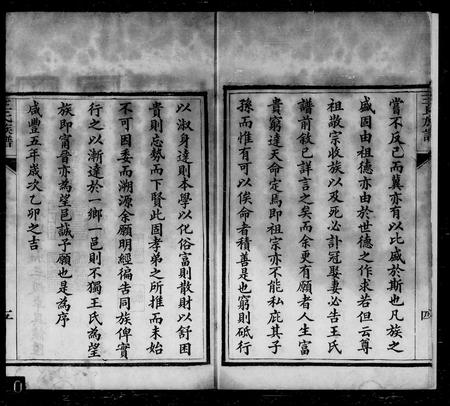 嘗不反已而冀亦有以比盛於斯也凡族之
盛固由祖德亦由於世德之作求若但云尊
祖敬宗收族以及死必訃冠娶妻必告王氏
譜前敘已詳言之矣而余更有願者人生富
貴窮達天命定焉即祖宗亦不能私庇其子
孫而惟有可以俟命者積善是也窮則砥行
以淑身達則本學以化俗富則散財以舒困
貴則忘勢而下賢此固孝弟之所推而未始
不可因委而溯源余願明經徧告同族俾實
行之以漸達於一鄉一邑則不獨王氏為望
族即甯晉亦為望邑誠予願也是為序
咸豐五年歲次乙卯之吉